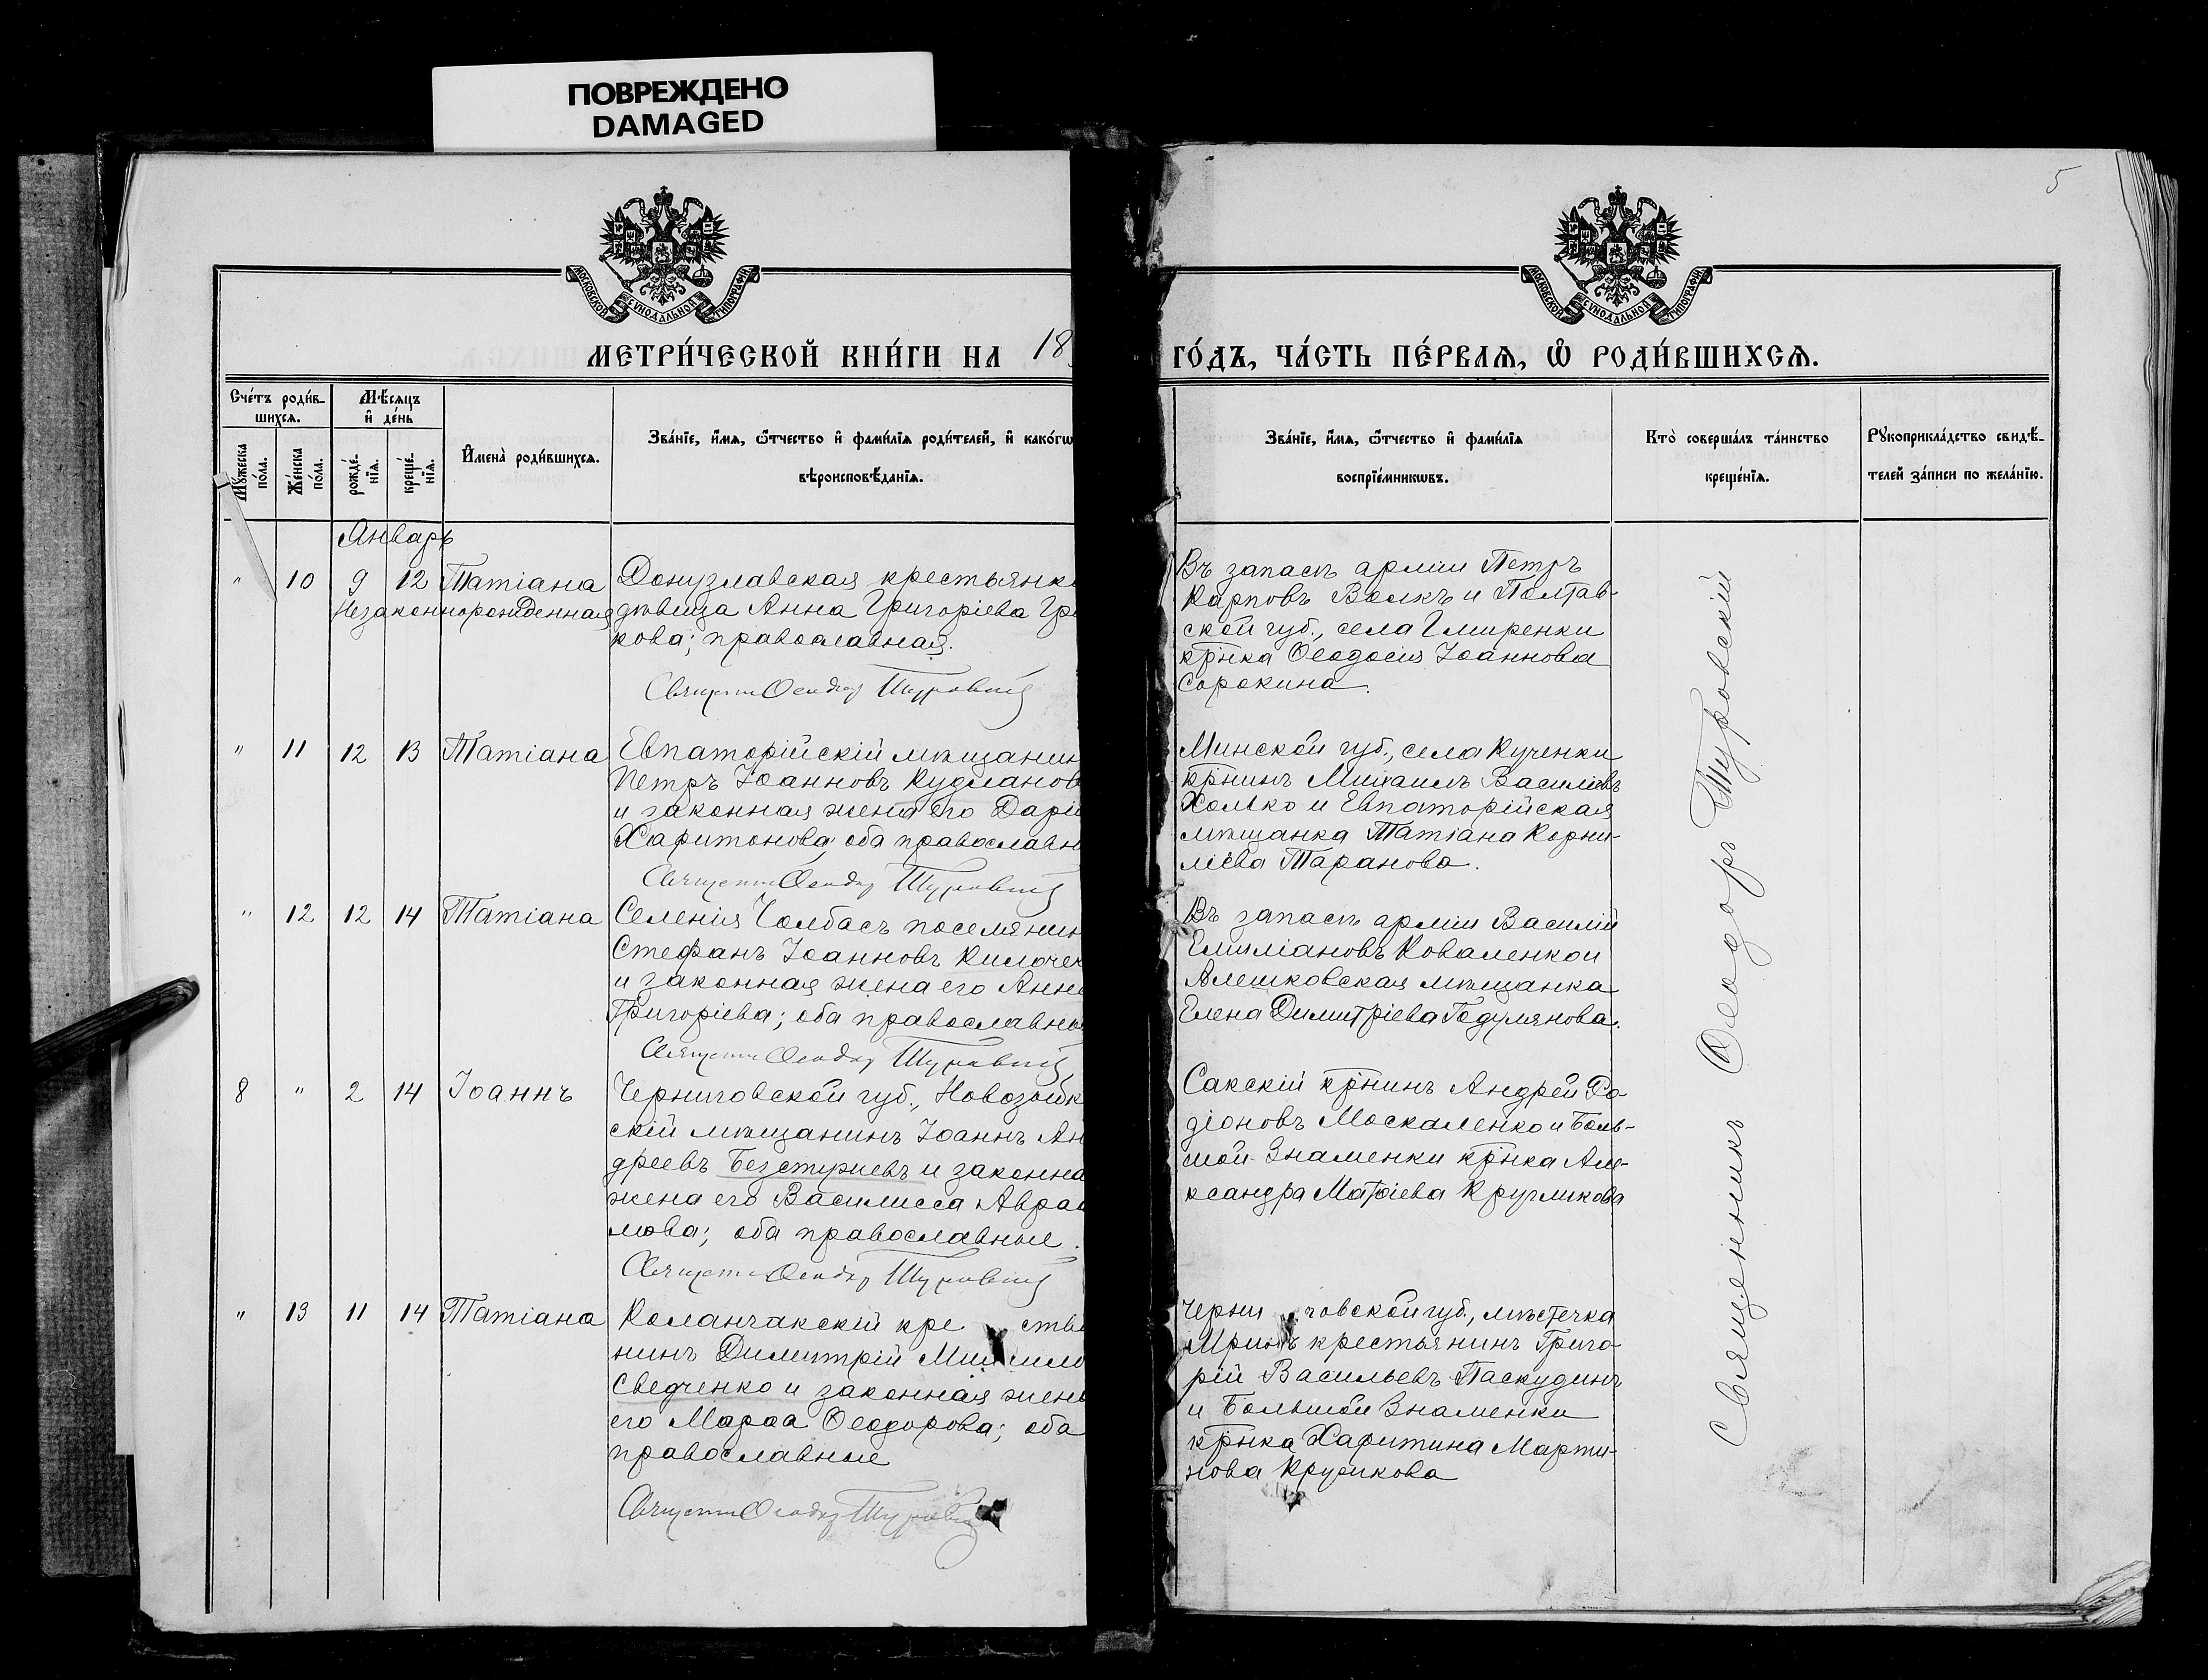 ПОВРЕЖДЕНО
DAMAGED
5
МОСКОВСКОЙ СѴНОДАЛЬНОЙ ТИПОГРАФІИ
МОСКОВСКОЙ СѴНОДАЛЬНОЙ ТИПОГРАФІИ
МЕТРИ́ЧЕСКОЙ КНИ́ГИ НА 18
ГО́ДЪ, ЧА́СТЬ ПЕ́РВАЯ, Ѽ РОДИ́ВШИХСЯ.
Сче́тъ роди́в-
шихся.
Мѣ́сяцъ
и҆ де́нь
Мꙋ́жеска
по́ла.
Же́нска
по́ла.
рожде́-
нїя.
креще́-
нїя.
И҆мена̀ роди́вшихся.
Зва́нїе, и҆́мя, ѻ҆́тчество и҆ фами́лїя роди́телей, и҆ како́гѡ
вѣроисповѣ́данїя.
Зва́нїе, и҆́мя, ѻ҆́тчество и҆ фами́лїя
воспрїе́мникѡвъ.
Кто̀ соверша́лъ та́инство
креще́нїя.
Рꙋкоприкла́дство свидѣ́-
телей за́писи по жела́нїю.
Январь
" 10 9 12 Татіана Донузлавская крестьянк
Незаконнорожденная дѣвица Анна Григоріева Гр
кова; православная.
Священ Ѳеодор Туровскій
Въ запасѣ арміи Петръ
Карповъ Волкъ и Полтав-
ской губ., села Гмиренки
кр҃нка Ѳеодосія Іоаннова
Сорокина.
" 11 12 13 Татіана Евпаторійскій мѣщанин
Петръ Іоанновъ Кудланов
и законная жена его Дарі
Харитонова; оба православн
Священ Ѳеодор Туровскій
Минской губ., села Кученки
кр҃нинъ Михаилъ Василіевъ
Холько и Евпаторійская
мѣщанка Татіана Корни-
ліева Таранова.
" 12 12 14 Татіана Селенія Чолбасъ поселянин
Стефанъ Іоанновъ Килочен
и законная жена его Анн
Григоріева; оба православн
Священ Ѳеодор Туровскій
Въ запасѣ арміи Василій
Емиліановъ Коваленко и
Алешковская мѣщанка
Елена Димитріева Годулянова.
8 " 2 14 Іоаннъ Черниговской губ., Новозыбк
скій мѣщанинъ Іоаннъ Ан
дреевъ Безстужевъ и законна
жена его Василисса Авра
мова; оба православные.
Священ Ѳеодор Туровскій
Сакскій кр҃нинъ Андрей Ро-
діоновъ Москаленко и Боль-
шой Знаменки кр҃нка Але-
ксандра Матѳіева Кругликова
" 13 11 14 Татіана Каланчакскій кре стья
нинъ Димитрій Михаило
Сведченко и законная жена
его Марѳа Ѳеодорова; оба
православные
Священ Ѳеодор Туровскій
Черни говской губ., мѣстечка
Мринъ крестьянинъ Григо-
рій Васильевъ Паскудинъ
и Большой Знаменки
кр҃нка Харитина Марти-
нова Кружкова
Священникъ Ѳеодоръ Туровскій